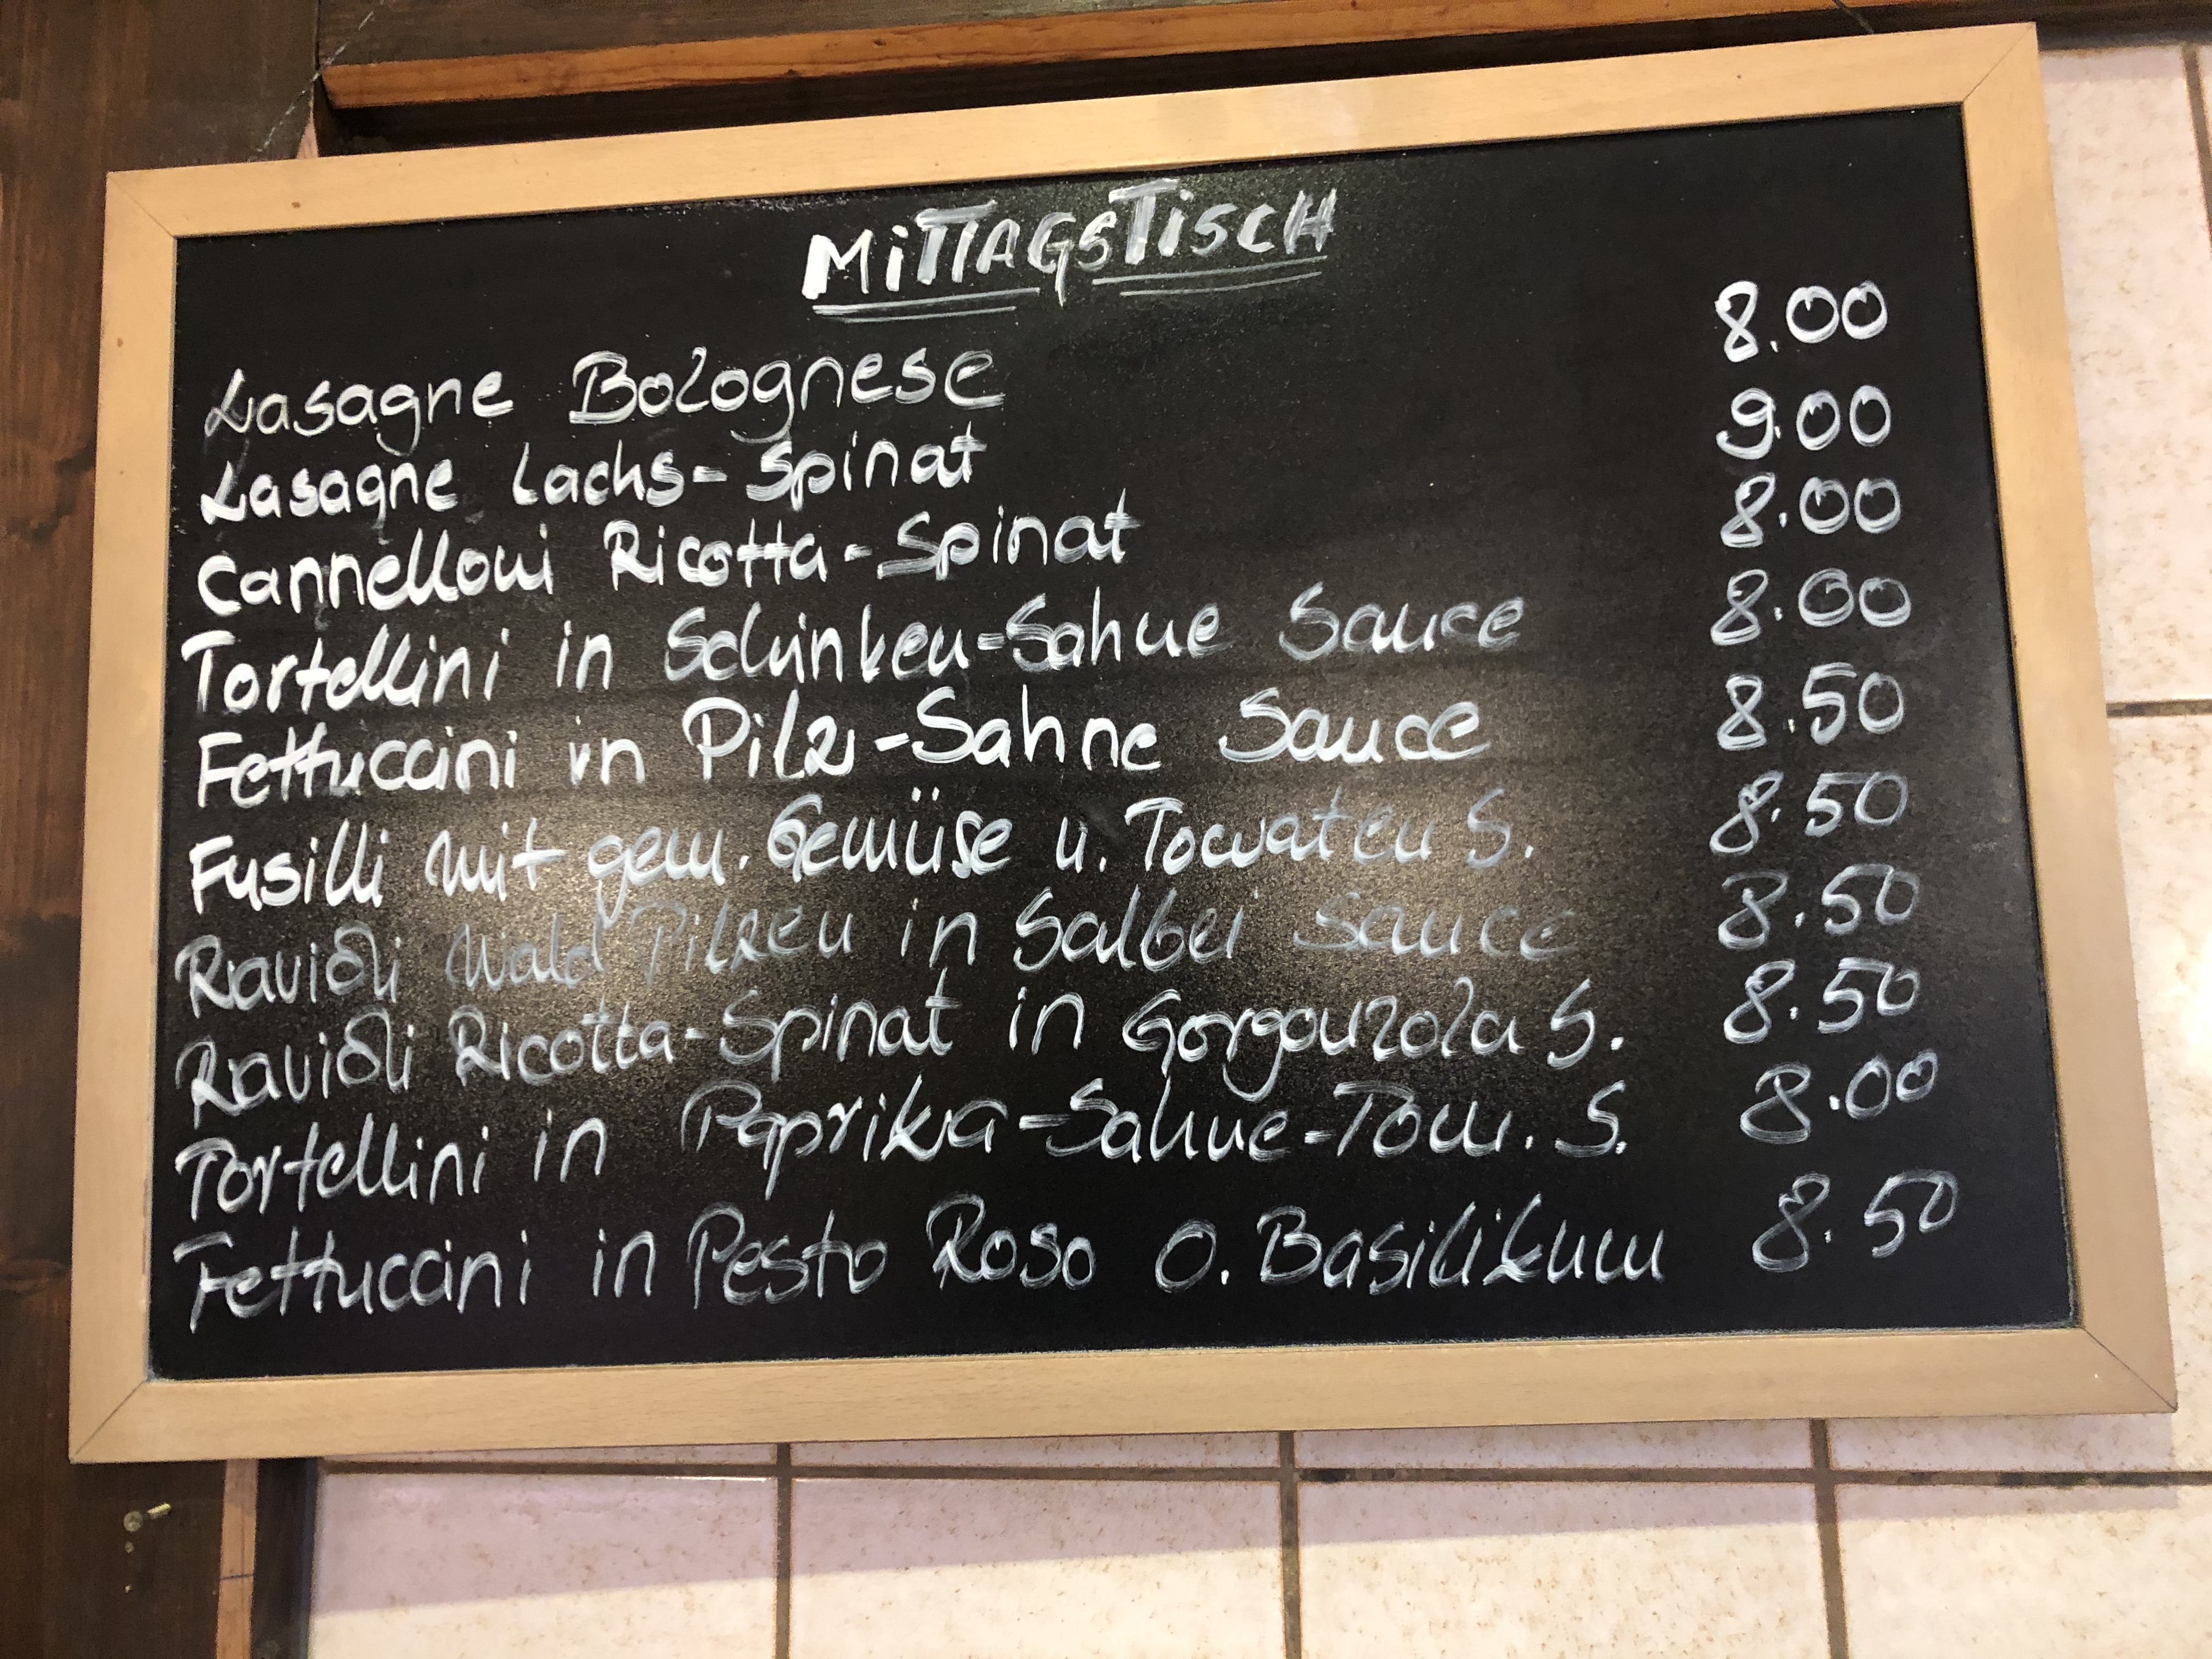 MiTTAGSTiSCH
Lasagne Bolognese 8.00
Lasagne Lachs-Spinat 9.00
Cannelloni Ricotta-Spinat 8.00
Tortellini in Schinken-Sahne Sauce 8.00
Fettuccini in Pilz-Sahne Sauce 8.50
Fusilli mit gem. Gemüse u. Tomaten S. 8.50
Ravioli Wald Pilzen in Salbei Sauce 8.50
Ravioli Ricotta-Spinat in Gorgonzola S. 8.50
Tortellini in Paprika-Sahne-Tom. S. 8.00
Fettuccini in Pesto Roso o. Basilikum 8.50